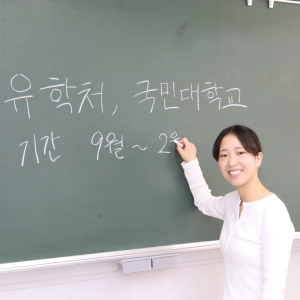 유학처, 국민대학교
기간 9월 ~ 2월